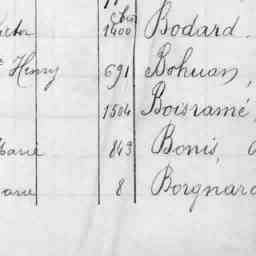 1400 Bodard.
Henry 691 Bohuan,
1504 Boisramé,
Marie 849 Bonis,
Marie 8 Borgnard